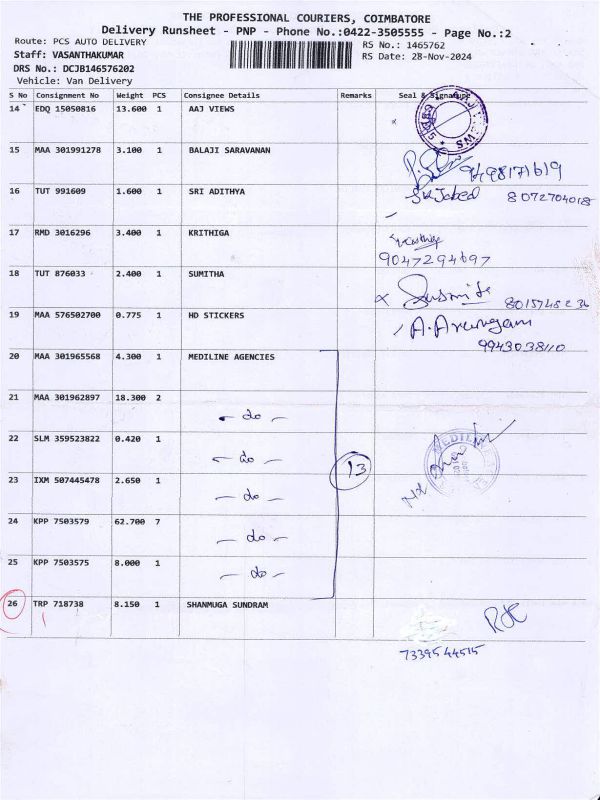 THE PROFESSIONAL COURIERS, COIMBATORE
Delivery Runsheet - PNP - Phone No.:0422-3505555 - Page No.:2
Route: PCS AUTO DELIVERY
RS No.: 1465762
Staff: VASANTHAKUMAR
RS Date: 28-Nov-2024
DRS No.: DCJB146576202
Vehicle: Van Delivery
S No Consignment No Weight PCS Consignee Details Remarks Seal & Signature
14 EDQ 15050816 13.600 1 AAJ VIEWS
15 MAA 301991278 3.100 1 BALAJI SARAVANAN
9498171619
16 TUT 991609 1.600 1 SRI ADITHYA
8072704018
17 RMD 3016296 3.400 1 KRITHIGA
9047294697
18 TUT 876033 2.400 1 SUMITHA
19 MAA 576502700 0.775 1 HD STICKERS
9943038110
20 MAA 301965568 4.300 1 MEDILINE AGENCIES
21 MAA 301962897 18.300 2
- do -
22 SLM 359523822 0.420 1
- do -
13
23 IXM 507445478 2.650 1
- do -
24 KPP 7503579 62.700 7
- do -
25 KPP 7503575 8.000 1
- do -
26 TRP 718738 8.150 1 SHANMUGA SUNDRAM
7339544515